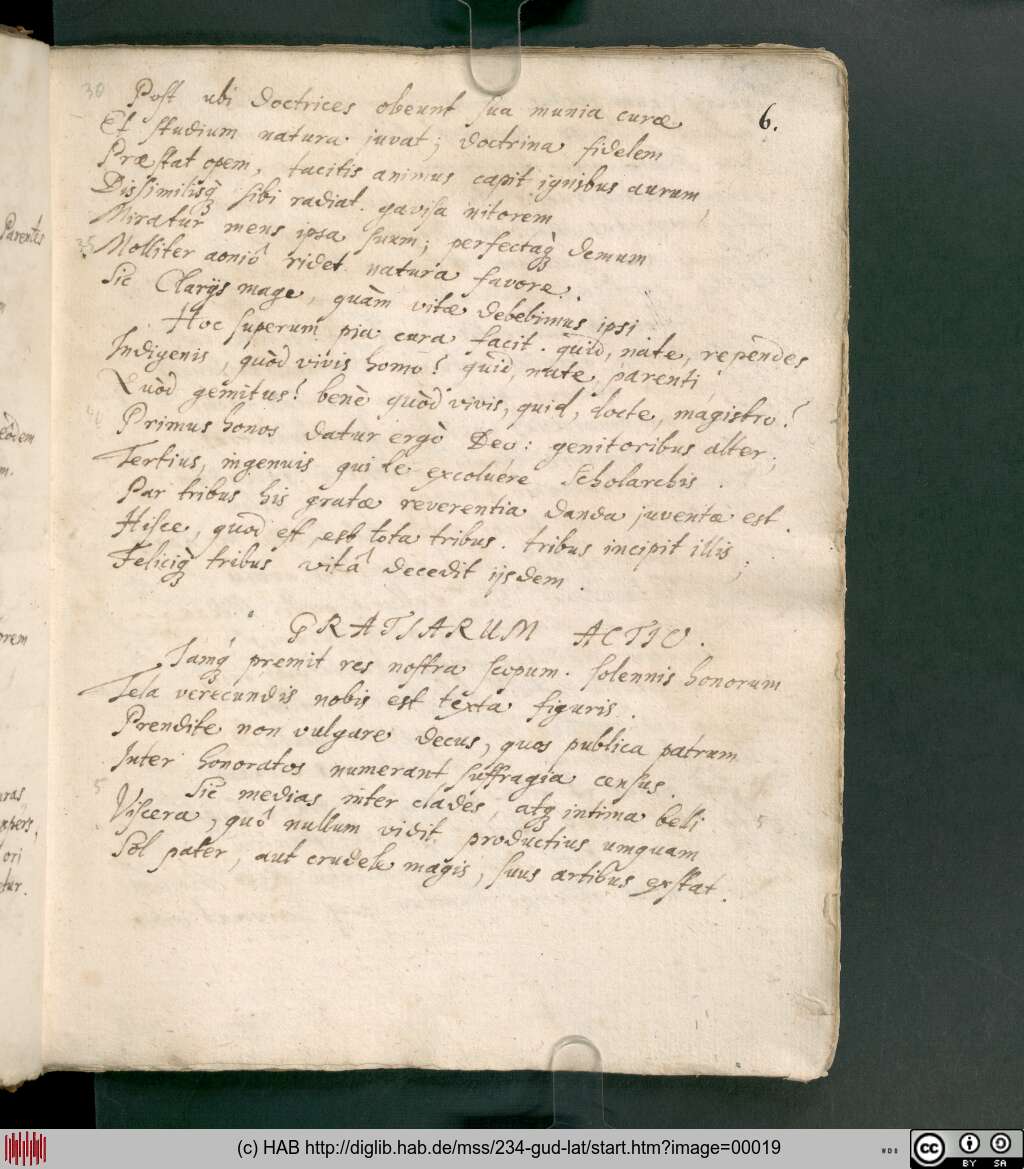 6.
30
Post ubi doctrices obeunt sua munia curæ
Et studium natura juvat; doctrina fidelem
Præstat opem, tacitis animus capit ignibus aurum,
Dissimilisq́ꝫ sibi radiat. gavisa nitorem
Miratur mens ipsa suum; perfectaq́ꝫ demum
35
Molliter aoniô ridet natura favore.
Sic Clarijs mage, quàm vitæ debebimus ipsi.
Hoc superum pia cura facit. quid, nate, rependes
Indigenis, quòd vivis homo? quid, nate, parenti
Quòd genitus? benè quòd vivis, quid, docte, magistro?
40
Primus honos datur ergò Deo: genitoribus alter;
Tertius, ingenuis qui te excoluére Scholarchis.
Par tribus his gratæ reverentia danda juventæ est.
Hisce, quod est, est tota tribus. tribus incipit illis;
Feliciq́ꝫ tribus vitâ decedit ijsdem.
GRATIARUM ACTIO.
Jamq́ꝫ premit res nostra scopum. solennis honorum
Tela verecundis nobis est texta figuris.
Prendite non vulgare decus, quos publica patrum
Inter honoratos numerant suffragia census.
5
Sic medias inter clades, atqꝫ intima belli
5
Viscera, quô nullum vidit productius umquam
Sol pater, aut crudele magis, suus artibus exstat.
Parentes
eôdem
m.
orem
uras
ori
tur.
(c) HAB http://diglib.hab.de/mss/234-gud-lat/start.htm?image=00019
cc BY SA